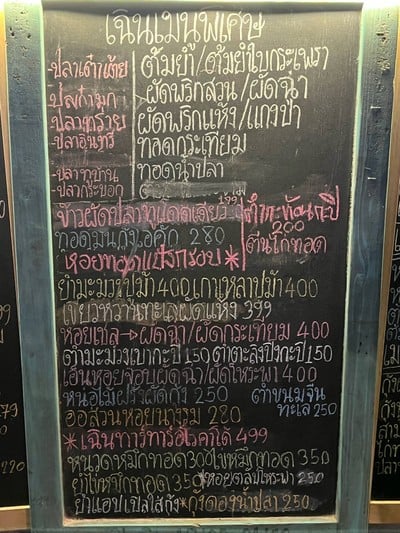 เฉินเมนูพิเศษ
-ปลาเต๋าเต้ย
-ปลาทราย
-ปลาอินทรี
-ปลากระบอก
ต้มยำ/ต้มยำใบกระเพรา
ผัดพริกสวน/ผัดฉ่า
ผัดพริกแห้ง/แกงป่า
ทอดกระเทียม
ทอดน้ำปลา
ข้าวผัดปลาทูแดดเดียว 199
ตำกะท้อนกะปิ 200
ทอดมันกุ้ง 280
ตีนไก่ทอด
หอยทอดแป้งกรอบ*
ยำมะม่วงปูม้า 400 เกาเหลาปูม้า 400
เขียวหวานทะเลผัดแห้ง 399
หอยเชลล์→ผัดฉ่า/ผัดกระเทียม 400
ตำมะม่วงเบากะปิ 150 ตำตะลิงปิงกะปิ 150
/ผัดโหระพา 400
หน่อไม้ฝรั่งผัดกุ้ง 250
ตำขนมจีนทะเล 250
ออส่วนหอยนางรม 220
*เฉินทาร์ทาร์ไรโคก็ได้ 499
หนวดหมึกทอด 300 ไข่หมึกทอด 350
ยำไข่หมึกทอด 350
*หอยตลับโหระพา 250
ยำแอปเปิลใส่กุ้ง*กุ้งดองน้ำปลา 250